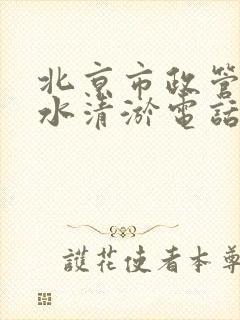 北京市政管
水清淤電話
護花使者本尊